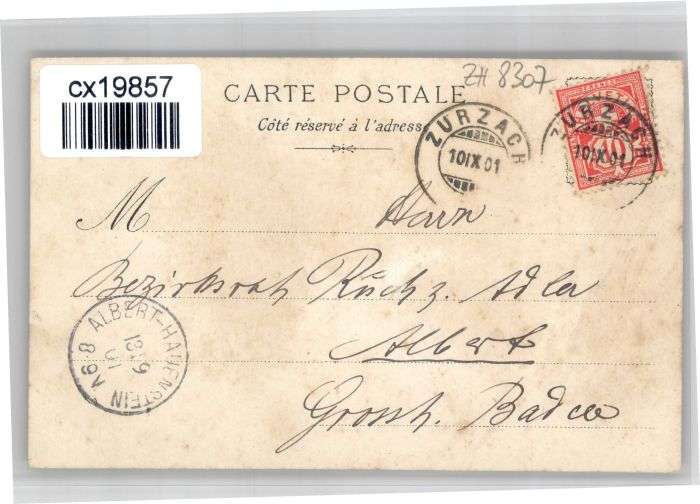 cx19857
ZH 8307
CARTE POSTALE
Côté réservé à l'adresse
ZURZACH
10 IX 01
ZURZACH
10 IX 01
10
M Herrn
Bezirksrath Ruch z. Adler
Albert
Grossh. Baden
ALBERT-HAUENSTEIN
13 9
01